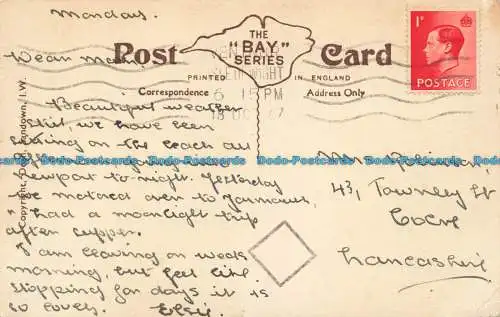 Monday.
THE
"BAY"
SERIES
Post Card
PRINTED IN ENGLAND
Correspondence
Address Only
1D
POSTAGE
6 15 PM
18 OC
Copyright, Dean, Sandown, I.W.
Beautiful weather
still, we have been
sitting on the beach all
Newport to-night. Yesterday
we motored over to Yarmouth,
& had a moonlight trip
after supper.
I am leaving on weds
morning, but feel like
stopping for days it is
so lovely. Elsie.
43, Townley St
Colne
Lancashire
Dodo-Postcards Dodo-Postcards Dodo-Postcards Dodo-Postcards Dodo-Postcards